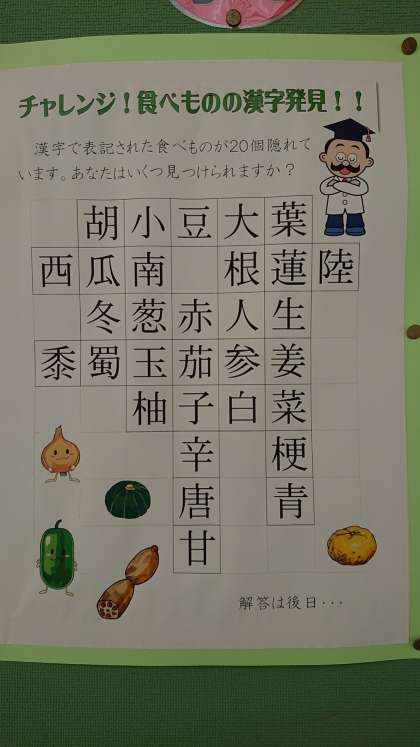 チャレンジ！食べものの漢字発見！！
漢字で表記された食べものが20個隠れて
います。あなたはいくつ見つけられますか？
胡小豆大葉
西瓜南根蓮陸
冬葱赤人生
黍蜀玉茄参姜
柚子白菜
辛梗
唐青
甘
解答は後日・・・